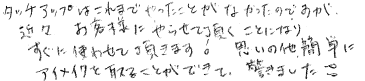 タッチアップはこれまでやったことがなかったのですが、
近々 お客様にやらせて頂くことになり
すぐに使わせて頂きます。 思いの他、簡単に
アイメイクを取ることができて、驚きました